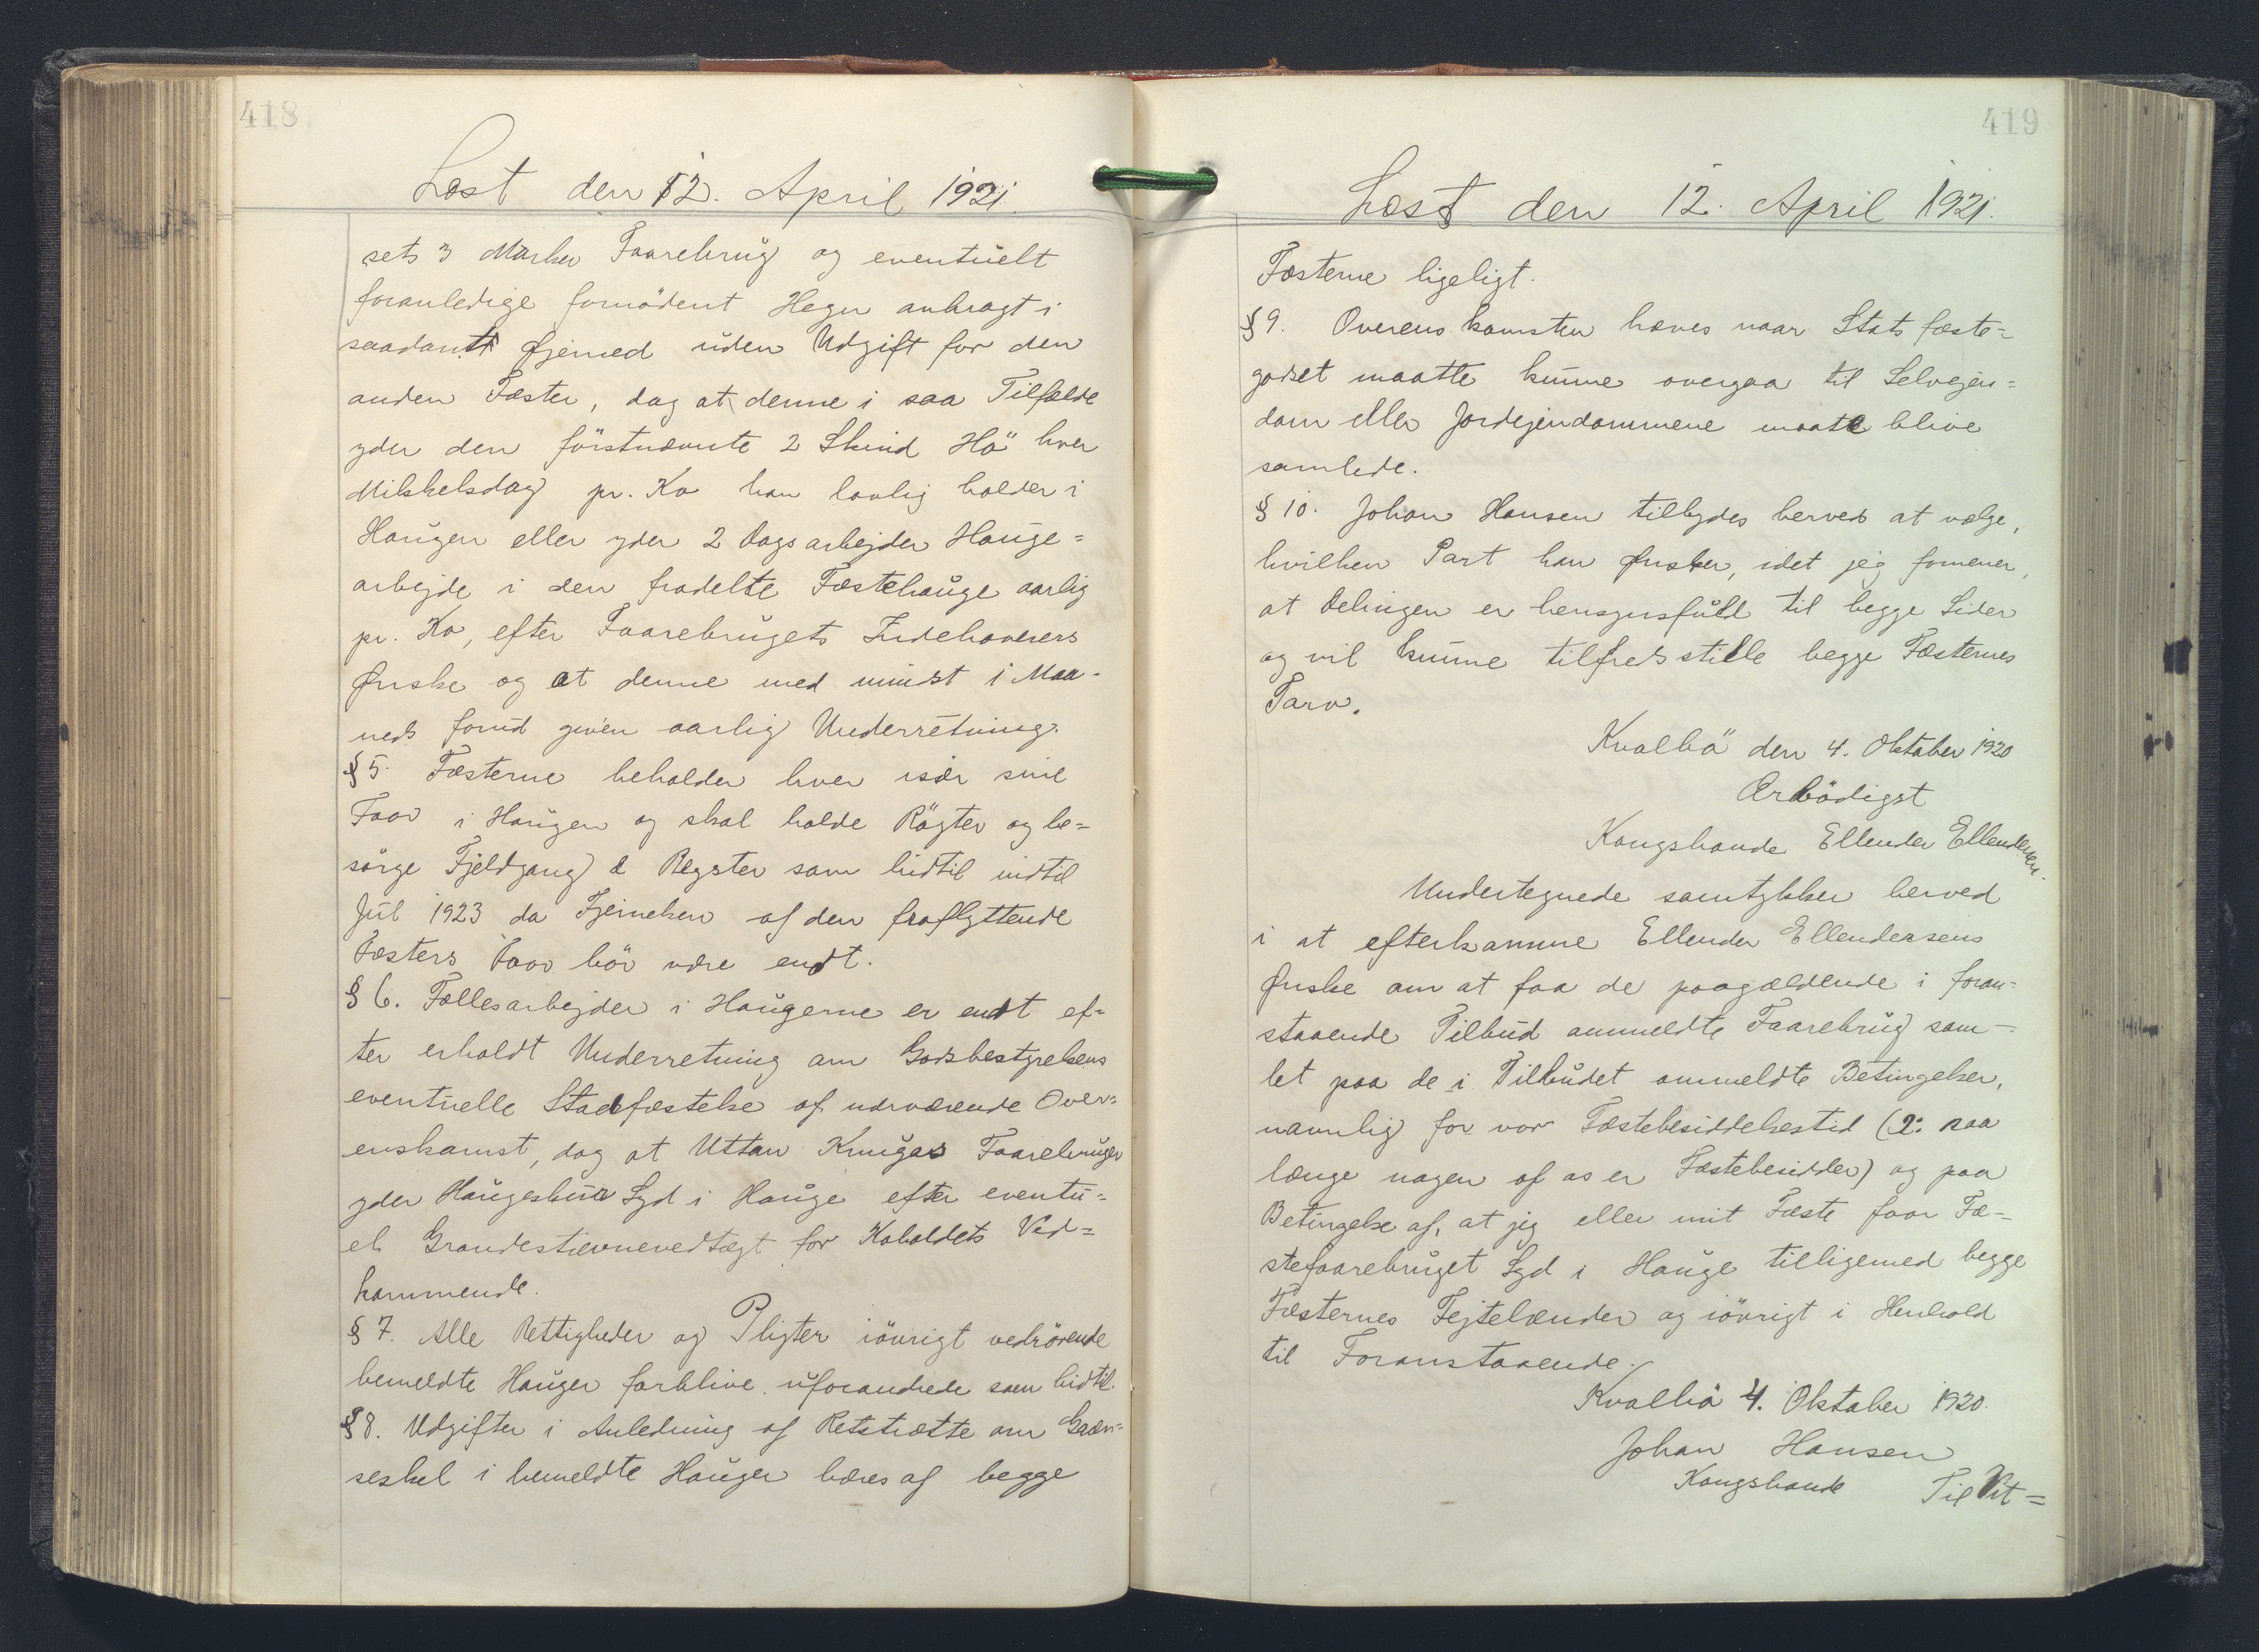 418
Læst den 12. April 1921.
sets 3 Marker Faarebrug og eventuelt
foranledige fornödent Hegn anbragt i
saadant Øjemed uden Udgift for den
anden Fæster, dog at denne i saa Tilfælde
yder den förstnævnte 2 Skind Hö hver
Mikkelsdag pr. Ko han lovlig holder i
Haugen eller yder 2 Dagsarbejder Hauge=
arbejde i den fradelte Fæstehauge aarlig
pr. Ko, efter Faarebrugets Indehaverers
Ønske og at denne med mindst 1 Maa-
neds forud given aarlig Underretning.
§ 5. Fæsterne beholder hver især sine
Faar i Haugen og skal holde Rögter og be=
sörge Fjeldgang & Røgter som hidtil indtil
Jul 1923 da Fjernelsen af den fraflyttende
Fæsters Faar bör være endt.
§ 6. Fællesarbejder i Haugerne er endt ef=
ter erholdt Underretning om Godsbestyrelsens
eventuelle Stadfæstelse af nærværende Over=
enskomst, dog at Uttan Krugas Faarebruger
yder Haugeshus Syd i Hauge efter eventu=
el Grandestævnevedtægt for Koholdets Ved=
kommende.
§ 7. Alle Rettigheder og Pligter iövrigt vedrörende
bemeldte Hauger forblive uforandrede som hidtil.
§ 8. Udgifter i Anledning af Retstrætte om Græn=
seskel i bemeldte Hauger bæres af begge
419
Læst den 12. April 1921.
Fæsterne ligeligt.
§ 9. Overenskomsten hæves naar Statsfæste=
godset maatte kunne overgaa til Selvejen=
dom eller Jordejendommene maatte blive
samlede.
§ 10. Johan Hansen tilbydes herved at vælge,
hvilken Part han Ønsker, idet jeg formener,
at Delingen er hensynsfuld til begge Sider
og vil kunne tilfredsstille begge Fæsternes
Tarv.
Kvalbö den 4. Oktober 1920
Ærbödigst
Kongsbonde Ellender Ellendersen.
Undertegnede samtykker herved
i at efterkomme Ellender Ellendersens
Ønske om at faa de paagældende i foran=
staaende Tilbud ommeldte Faarebrug sam-
let paa de i Tilbudet ommeldte Betingelser,
navnlig for vor Fæstebesiddelsestid (ɔ: saa
længe nogen af os er Fæstebesidder) og paa
Betingelse af, at jeg eller mit Fæste faar Fæ-
stefaarebruget Syd i Hauge tilligemed begge
Fæsternes Fejtelænder og iövrigt i Henhold
til Foranstaaende.
Kvalbö 4. Oktober 1920.
Johan Hansen
Kongsbonde Til Vit=